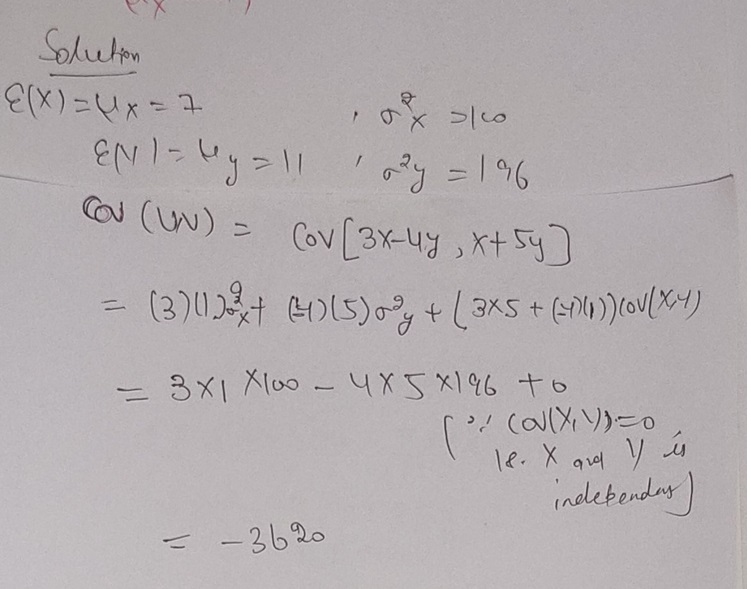 Solution
E(X) = μx = 7 , σ²x = 100
E(Y) = μy = 11 , σ²y = 196
Cov (UV) = Cov [3x-4y , x+5y]
= (3)(1)σ²x + (-4)(5)σ²y + (3x5 + (-4)(1)) Cov(X,Y)
= 3x1 x100 - 4x5 x196 + 0
[∵ Cov(X,Y)=0
ie. X and Y is
independent]
= -3620